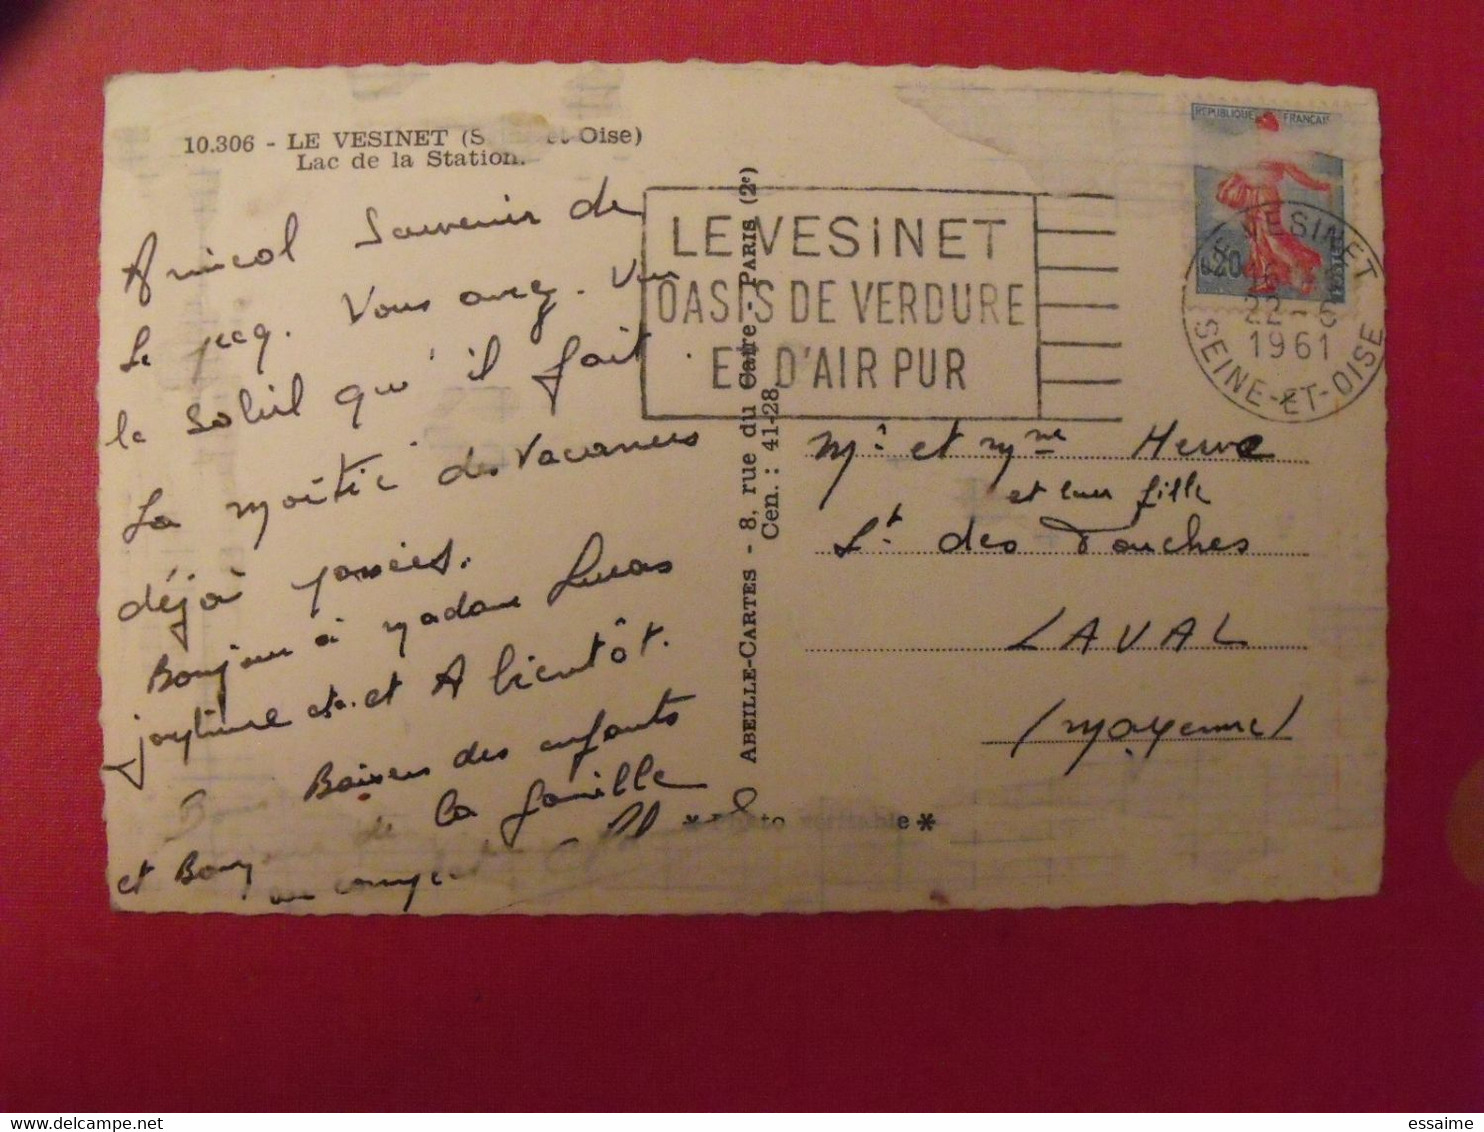 10.306 - LE VESINET (S et-Oise)
Lac de la Station.
Amical Souvenir de
Le pecq. Vous avez. Vu
le soleil qu'il fait.
La moitié des Vacances
déjà passées.
Bonjour à madame Lucas
et A bientôt.
Baisers des enfants
de la famille
et Bonj
au complet
ABEILLE-CARTES - 8, rue du Caire - PARIS (2e)
Cen. : 41-28
LE VESINET
OASIS DE VERDURE
ET D'AIR PUR
REPUBLIQUE FRANCAISE
0.20
LE VESINET
22-8
1961
SEINE-ET-OISE
Mr et Mme Herve
et leur fille
St des Touches
LAVAL
(Mayenne)
* Photo e *
delcampe.net
essaime